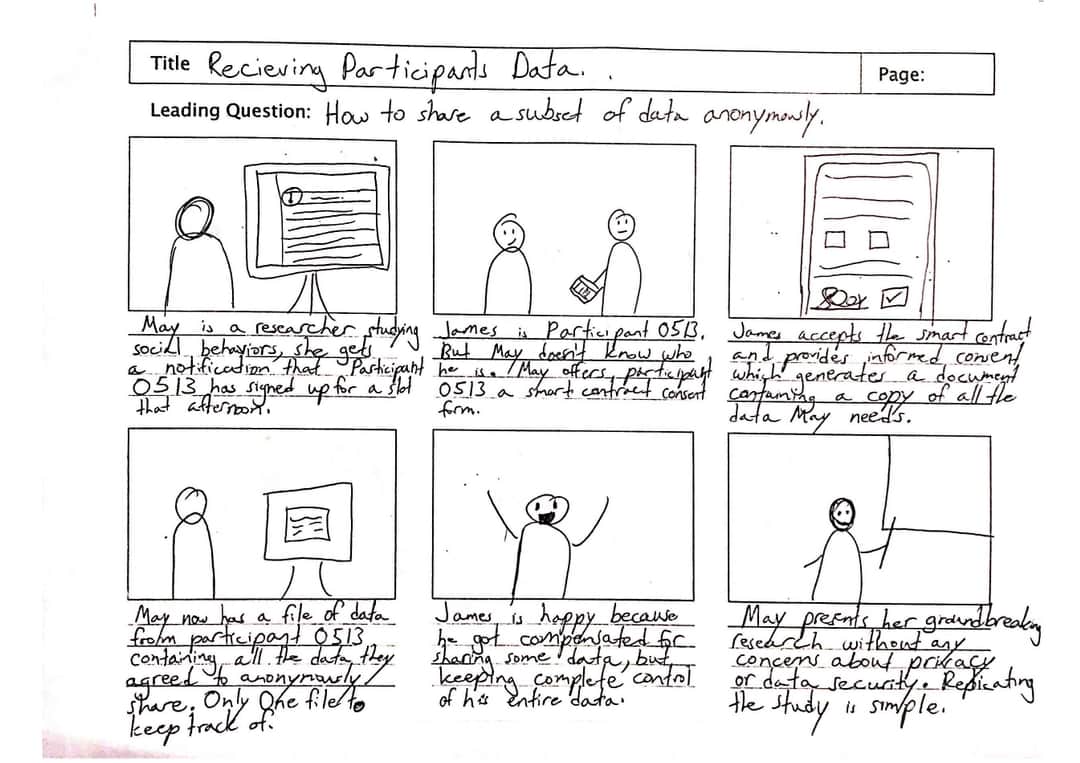 Title Recieving Participants Data.
Page:
Leading Question: How to share a subset of data anonymously.
May is a researcher studying
social behaviors, she gets
a notification that Participant
0513 has signed up for a slot
that afternoon.
James is Participant 0513.
But May doesn't know who
he is. May offers participant
0513 a smart contract consent
form.
James accepts the smart contract
and provides informed consent
which generates a document
containing a copy of all the
data May needs.
May now has a file of data
from participant 0513
containing all the data they
agreed to anonymously
share. Only One file to
keep track of.
James is happy because
he got compensated for
sharing some data, but
keeping complete control
of his entire data.
May presents her groundbreaking
research without any
concerns about privacy
or data security. Replicating
the study is simple.